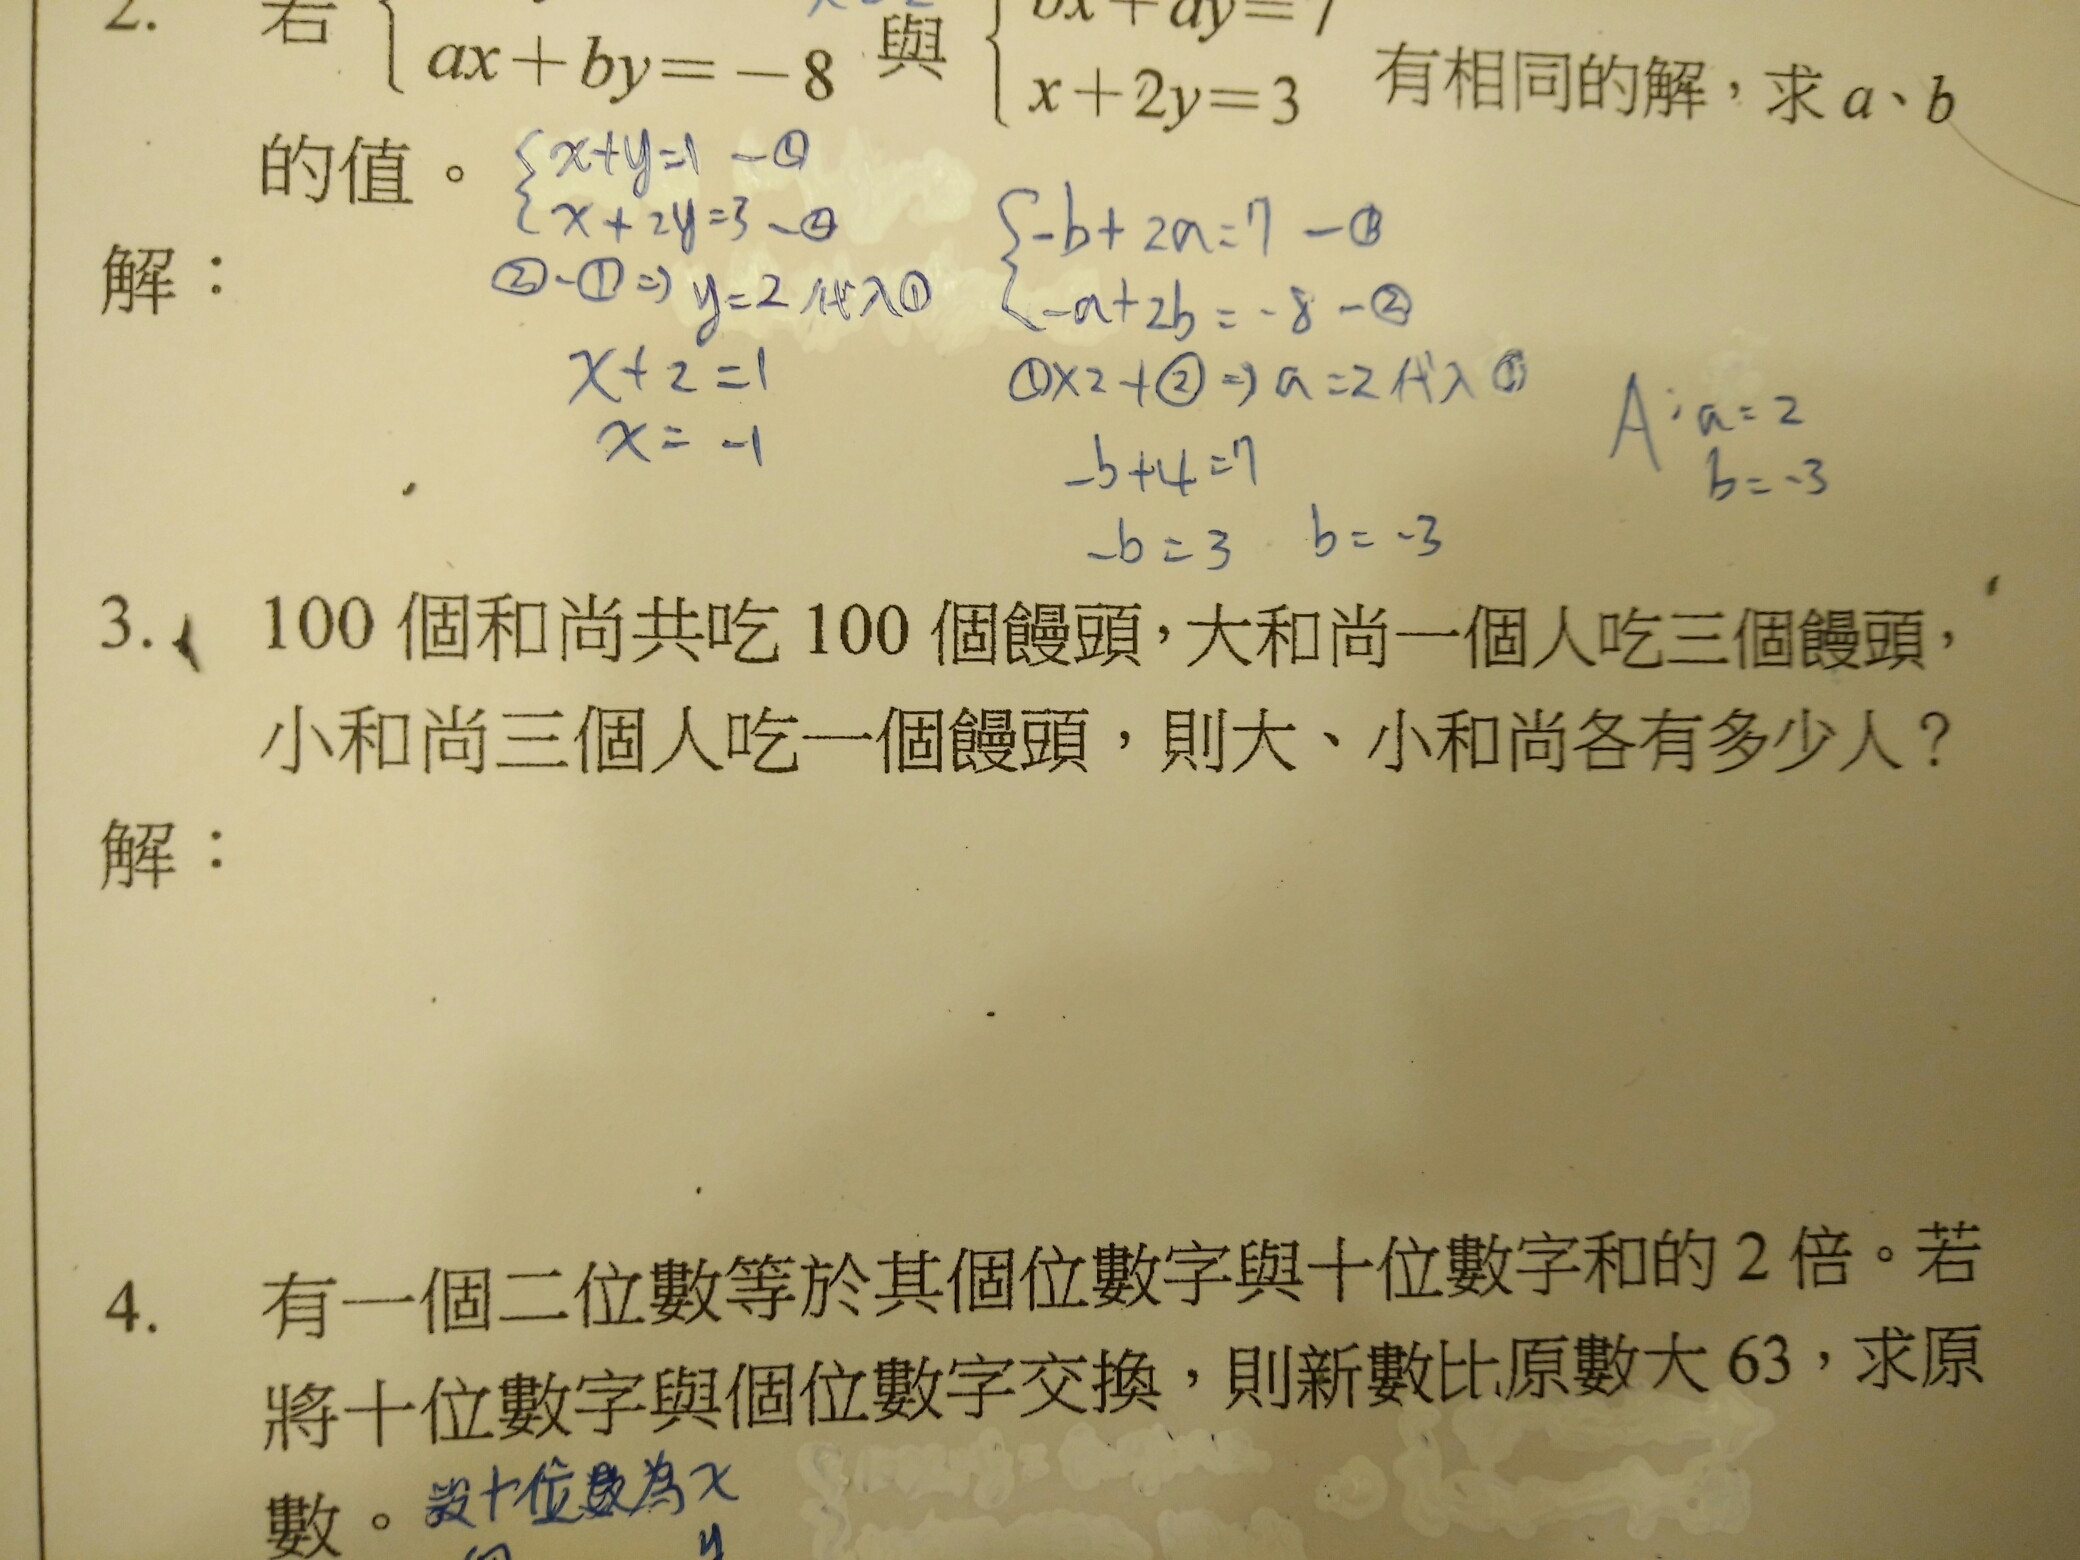 2. 若 { ax+by=-8 與 { bx+ay=7
x+2y=3 有相同的解，求 a、b
的值。
{ x+y=1 -①
x+2y=3 -②
②-①⇒ y=2 代入①
x+2=1
x=-1
{ -b+2a=7 -①
-a+2b=-8 -②
①x2+②⇒ a=2 代入①
-b+4=7
-b=3 b=-3
A: a=2
b=-3
解：
3. 100 個和尚共吃 100 個饅頭，大和尚一個人吃三個饅頭，
小和尚三個人吃一個饅頭，則大、小和尚各有多少人？
解：
4. 有一個二位數等於其個位數字與十位數字和的 2 倍。若
將十位數字與個位數字交換，則新數比原數大 63，求原
數。 設十位數為x
y